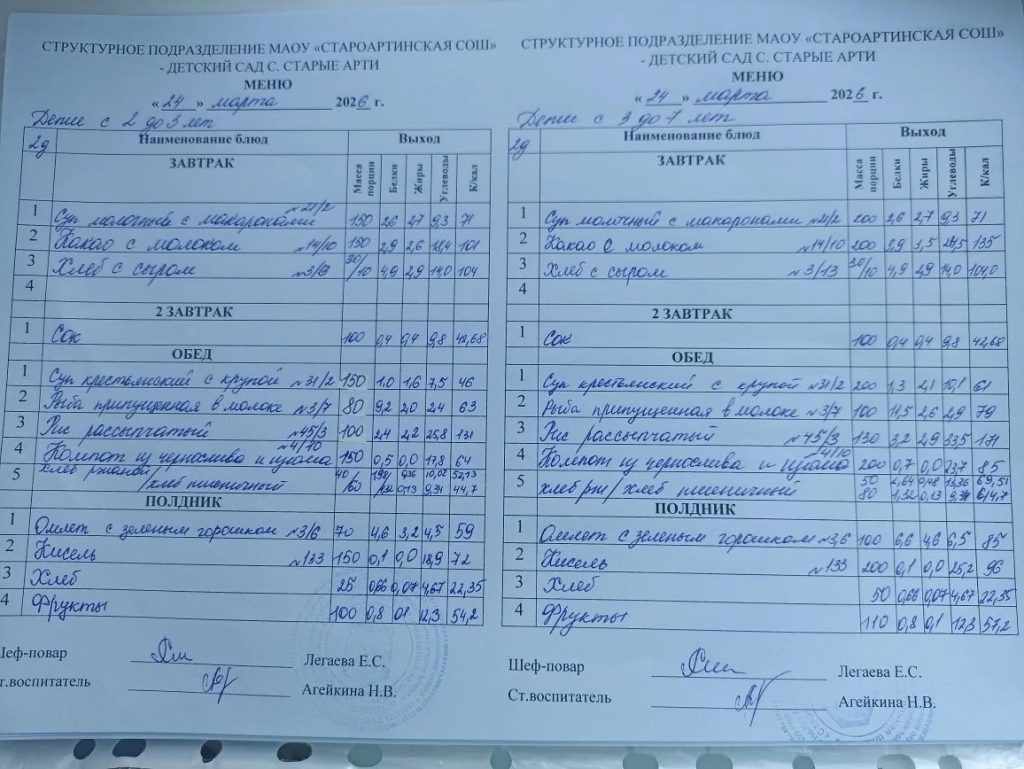 СТРУКТУРНОЕ ПОДРАЗДЕЛЕНИЕ МАОУ «СТАРОАРТИНСКАЯ СОШ»
- ДЕТСКИЙ САД С. СТАРЫЕ АРТИ
МЕНЮ
« 24 » марта 2026 г.
Дети с 2 до 3 лет
2д Наименование блюд Выход
ЗАВТРАК Масса порции Белки Жиры Углеводы К/кал
1 Суп молочный с макаронами №21/2 150 2,6 2,7 9,3 71
2 Какао с молоком №14/10 150 2,9 2,6 18,4 101
3 Хлеб с сыром 30/10 4,9 2,9 14,0 104
4
2 ЗАВТРАК
1 Сок 100 0,4 0,4 9,8 42,68
ОБЕД
1 Суп крестьянский с крупой №31/2 150 1,0 1,6 7,5 46
2 Рыба припущенная в молоке №3/7 80 9,2 2,0 2,4 63
3 Рис рассыпчатый №45/3 100 2,4 2,2 25,8 131
4 Компот из чернослива и изюма №4/10 150 0,5 0,0 17,8 64
5 хлеб ржаной/ 40
/хлеб пшеничный 60 0,13 9,34 44,7
ПОЛДНИК
1 Омлет с зеленым горошком №3/6 70 4,6 3,2 4,5 59
2 Кисель №133 150 0,1 0,0 18,9 72
3 Хлеб 25 0,66 0,07 4,67 22,35
4 Фрукты 100 0,8 0,1 12,3 54,2
Шеф-повар Легаева Е.С.
Ст.воспитатель Агейкина Н.В.
СТРУКТУРНОЕ ПОДРАЗДЕЛЕНИЕ МАОУ «СТАРОАРТИНСКАЯ СОШ»
- ДЕТСКИЙ САД С. СТАРЫЕ АРТИ
МЕНЮ
« 24 » марта 2026 г.
Дети с 3 до 7 лет
2д Наименование блюд Выход
ЗАВТРАК Масса порции Белки Жиры Углеводы К/кал
1 Суп молочный с макаронами №21/2 200 2,6 2,7 9,3 71
2 Какао с молоком №14/10 200 3,9 3,5 24,5 135
3 Хлеб с сыром №3/13 30/10 4,9 2,9 14,0 104,0
4
2 ЗАВТРАК
1 Сок 100 0,4 0,4 9,8 42,68
ОБЕД
1 Суп крестьянский с крупой №31/2 200 1,3 2,1 10,1 61
2 Рыба припущенная в молоке №3/7 100 11,5 2,6 2,9 79
3 Рис рассыпчатый №45/3 130 3,2 2,9 33,5 171
4 Компот из чернослива и изюма №4/10 200 0,7 0,0 23,7 85
5 хлеб рж/хлеб пшеничный 50 2,64 0,48 13,36 69,51
80 1,32 0,13 9,34
ПОЛДНИК
1 Омлет с зеленым горошком №3,6 100 6,6 4,6 6,5 85
2 Кисель №133 200 0,1 0,0 25,2 96
3 Хлеб 50 0,66 0,07 4,67 22,35
4 Фрукты 110 0,8 0,1 12,3 57,2
Шеф-повар Легаева Е.С.
Ст.воспитатель Агейкина Н.В.